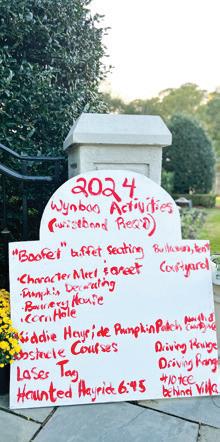 2024
Wynboo Activities
(wristband Req'd)
"Boofet" buffet seating
· Character Meet & Greet Courtyard
· Pumpkin Decorating
· Bouncey House
· Corn Hole
Kiddie Hayride Pumpkin Patch
Obstacle Courses Driving Range
Laser Tag Driving Range
Haunted Hayride 6:45 #10 tee
behind Villa